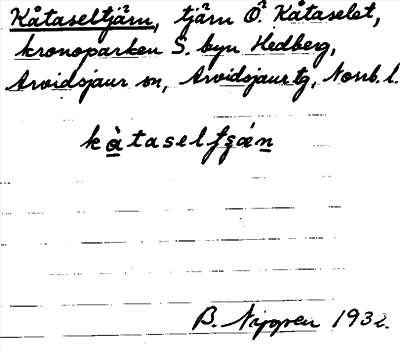 Kåtaseltjärn, tjärn Ö. Kåtaselet,
kronoparken S. byn Hedberg,
Arvidsjaur sn, Arvidsjaur tg, Norrb. l.
kàtaseltʂán
B. Nygren 1932.